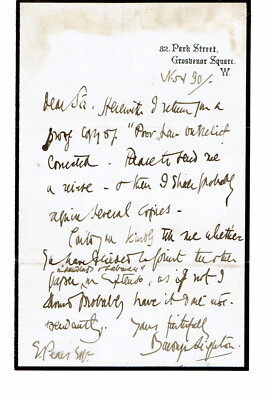 82. Park Street,
Grosvenor Square.
W.
Nov 30/
Dear Sir. Herewith I return you a
proof copy of "Poor Law out relief
corrected. Please to send me
a revise - & then I shall probably
require several copies -
Could you kindly tell me whether
you have decided to print the other
paper, in extenso, as if not I
should probably have it done
Yours faithfully
Baldwyn Leighton
E Pears Esqr.